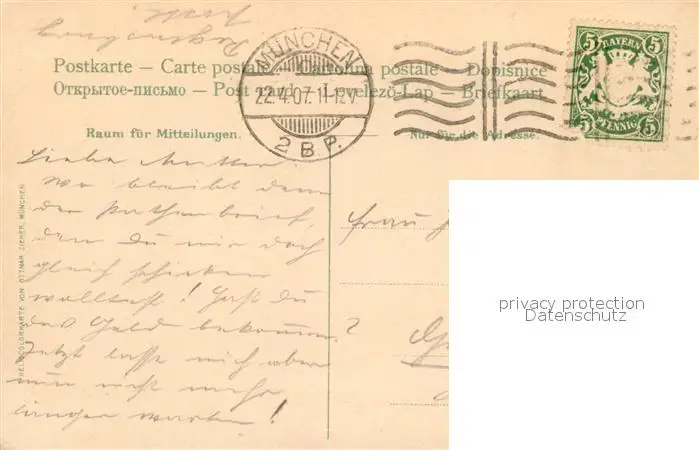 Regensburg
Postkarte – Carte postale – Cartolina postale – Dopisnice
Открытое-письмо – Post card – Levelező-Lap – Briefkaart
MÜNCHEN
22.4.07. 11-12V.
2 B.P.
5 BAYERN 5
5 PFENNIG 5
Raum für Mitteilungen.
Nur für die Adresse.
Liebe Mutter
wo bleibt denn
der Pathenbrief,
den Du mir doch
gleich schicken
wolltest! Hast du
das Geld bekommen?
Jetzt lasse mich aber
nun nicht mehr
länger warten!
Frau
HELIOCOLORKARTE VON OTTMAR ZIEHER, MÜNCHEN
privacy protection
Datenschutz